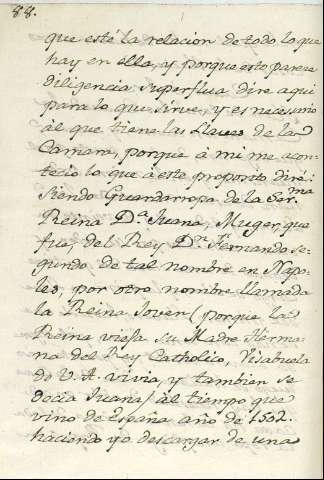 88.
que esté la relacion de todo lo que
hay en ella, y porque esto parece
diligencia superflua dire aqui
para lo que sirve, y es necessario
àl que tiene las llaves de la
Camara, porque à mi me acon-
tecio lo que à este proposito diré:
Siendo Guardarropa de la Ser.ma
Reina D.a Juana, Muger, que
fue, del Rey D.n Fernando se-
gundo de tal nombre en Napo-
les, por otro nombre llamada
la Reina Joven (porque la
Reina vieja su Madre Herma-
na del Rey Catholico, Visabuelo
de V. A. vivia, y tambien se
decia Juana) àl tiempo que
vino de España año de 1502.
haciendo yo descargar de una